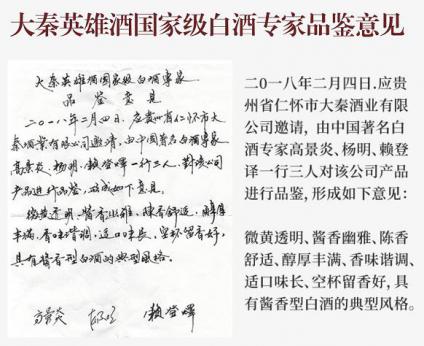 大秦英雄酒国家级白酒专家品鉴意见
大秦英雄酒国家级白酒专家
品鉴意见
二0一八年二月四日.应贵州省仁怀市大
秦酒业有限公司邀请,由中国著名白酒专家
高景炎、杨明、赖登晖一行三人,对该公司
产品进行品鉴,形成如下意见:
微黄透明、酱香幽雅、陈香舒适、醇厚
丰满、香味谐调、适口味长、空杯留香好,
具有酱香型白酒的典型风格。
高景炎 杨明 赖登晖
二〇一八年二月四日.应贵
州省仁怀市大秦酒业有限
公司邀请, 由中国著名白
酒专家高景炎、杨明、赖登
译一行三人对该公司产品
进行品鉴, 形成如下意见:
微黄透明、酱香幽雅、陈香
舒适、醇厚丰满、香味谐调、
适口味长、空杯留香好, 具
有酱香型白酒的典型风格。